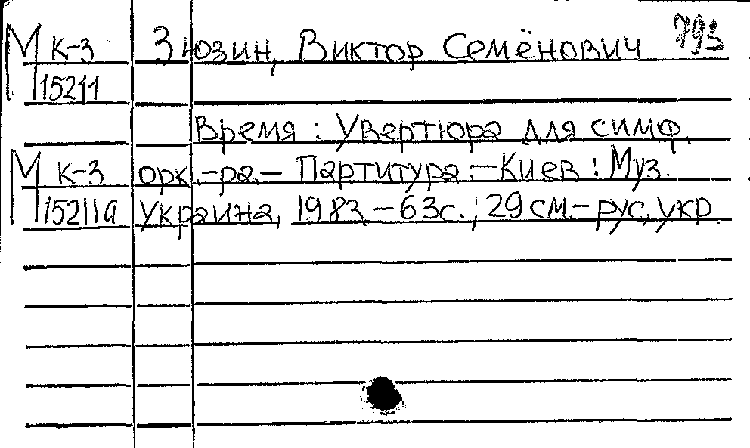 М К-3 Зюзин, Виктор Семёнович 793
15211
Время : Увертюра для симф.
М К-3 орк.-ра.— Партитура.— Киев : Муз.
15211а Украина, 1983.— 63с. ; 29 см.— рус., укр.